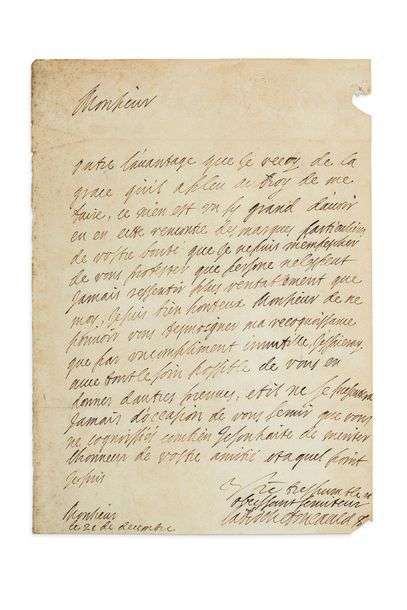 Monsieur
outre lavantage que Je recoy de la
grace quil a pleu au Roy de me
faire, ce men est un sy grand davoir
eu en cette rencontre des marques particulieres
de vostre bonté que Je ne puis mempescher
de vous protester que persone ne les peut
Jamais ressentir plus veritablement que
moy, Je suis bien honteux Monsieur de ne
pouvoir vous tesmoigner ma recognoissance
que par un compliment inutille,
avec tout le soin possible de vous en
donner dautres preuves, et il ne se
Jamais doccasion de vous servir que vous
ne cognoissiés combien Je souhaite de meriter
lhonneur de vostre amitié et a quel point
Je suis
Vre tres humble et
obeissant serviteur
Monsieur
le 21 de decembre